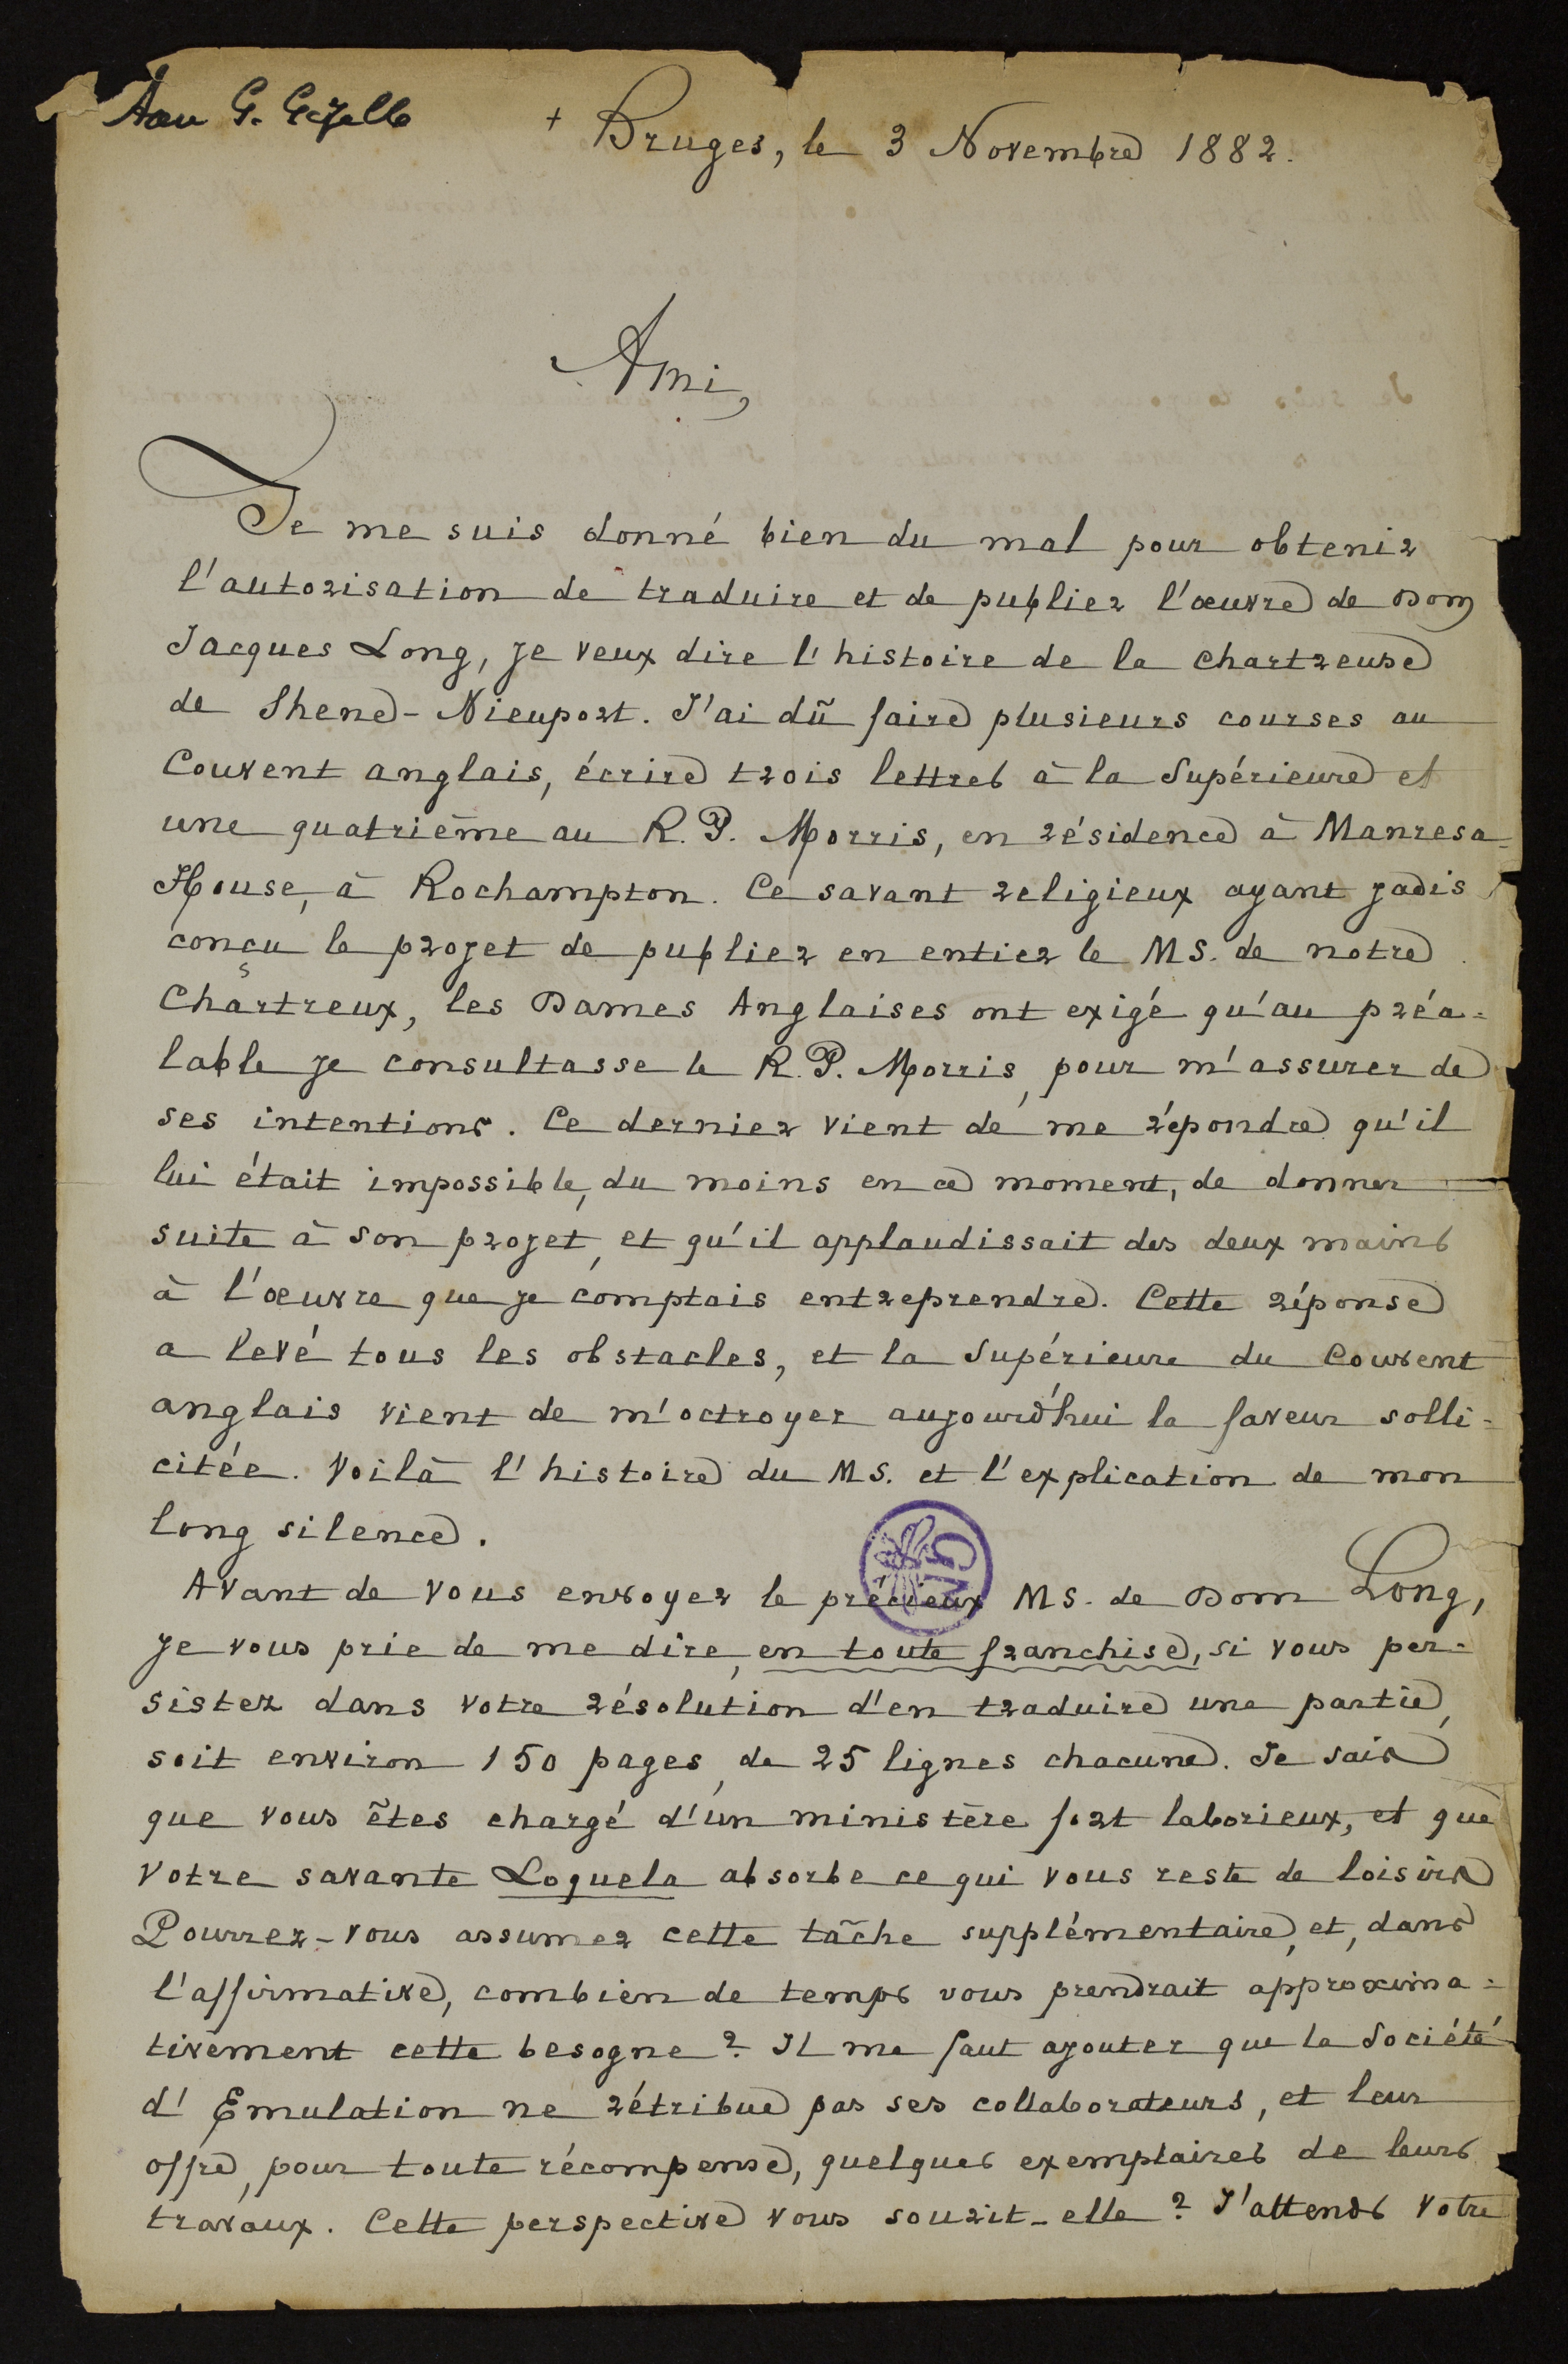 Aan G. Gezelle
+ Bruges, le 3 Novembre 1882.
Ami,
Je me suis donné bien du mal pour obtenir
l'autorisation de traduire et de publier l'œuvre de Dom
Jacques Long, je veux dire l'histoire de la chartreuse
de Shene-Nieuport. J'ai dû faire plusieurs courses au
Couvent anglais, écrire trois lettres à la Supérieure et
une quatrième au R. P. Morris, en résidence à Manresa-
House, à Rochampton. Ce savant religieux ayant jadis
conçu le projet de publier en entier le MS. de notre
Chartreux, les Dames Anglaises ont exigé qu'au préa=
lable je consultasse le R. P. Morris, pour m'assurer de
ses intentions. Ce dernier vient de me répondre qu'il
lui était impossible, du moins en ce moment, de donner
suite à son projet, et qu'il applaudissait des deux mains
à l'œuvre que je comptais entreprendre. Cette réponse
a levé tous les obstacles, et la Supérieure du Couvent
anglais vient de m'octroyer aujourd'hui la faveur solli=
citée. Voilà l'histoire du MS. et l'explication de mon
long silence.
GM
Avant de vous envoyer le précieux MS. de Dom Long,
je vous prie de me dire, en toute franchise, si vous per=
sistez dans votre résolution d'en traduire une partie,
soit environ 150 pages, de 25 lignes chacune. Je sais
que vous êtes chargé d'un ministère fort laborieux, et que
votre savante Loquela absorbe ce qui vous reste de loisirs
Pourrez-vous assumer cette tâche supplémentaire, et, dans
l'affirmative, combien de temps vous prendrait approxima=
tivement cette besogne? Il me faut ajouter que la Société
d'Emulation ne rétribue pas ses collaborateurs, et leur
offre, pour toute récompense, quelques exemplaires de leurs
travaux. Cette perspective vous sourit-elle? J'attends votre